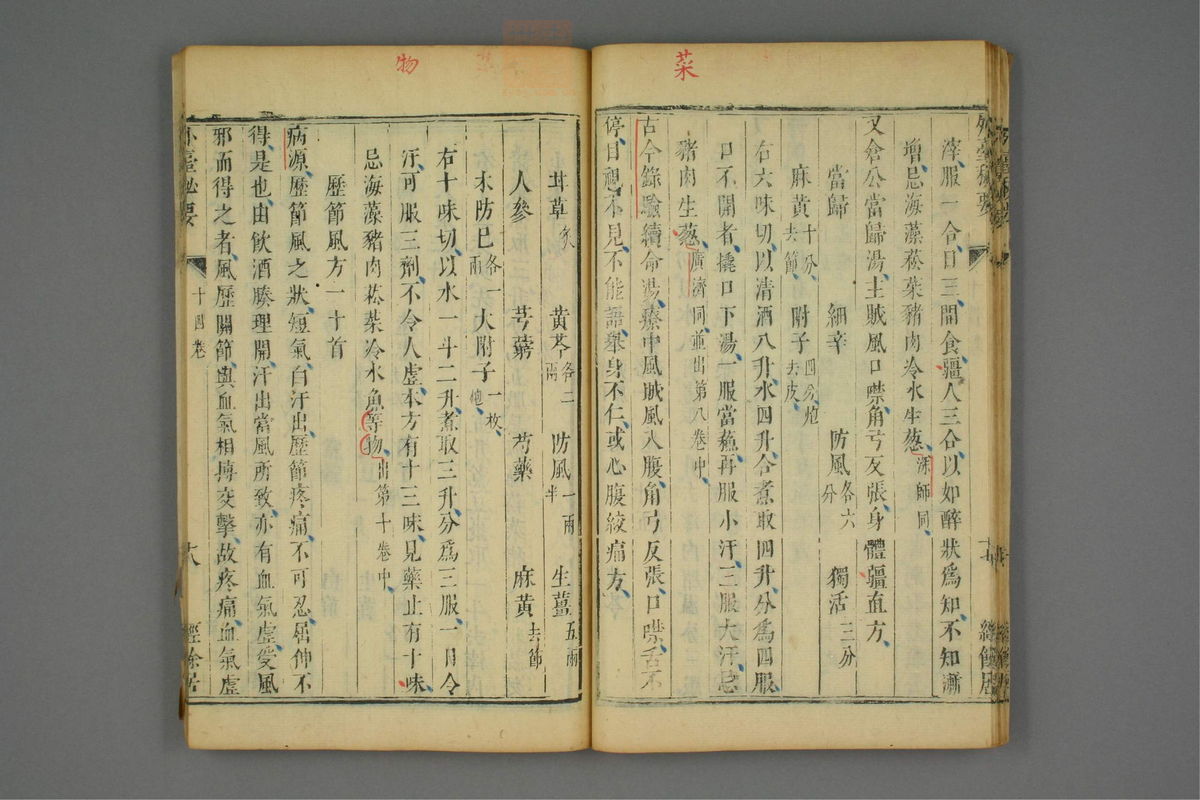 菜
外臺秘要
經餘居
滓服一合日三間食彊人三合以如醉狀為知不知漸
增忌海藻菘菜豬肉冷水生葱深師同
又倉公當歸湯主賊風口噤角弓反張身體彊直方
當歸 細辛 防風各六分 獨活三分
麻黃十分去節 附子四分炮去皮
右六味切以清酒八升水四升合煮取四升分為四服
口不開者撬口下湯一服當蘓再服小汗三服大汗忌
豬肉生葱廣濟同並出第八卷中
古今錄驗續命湯療中風賊風入腹角弓反張口噤舌不
停目視不見不能語舉身不仁或心腹絞痛方
物
甘草炙 黃芩各二兩 防風一兩半 生薑五兩
人參 芎藭 芍藥 麻黃去節
木防巳各一兩 大附子一枚炮
右十味切以水一斗二升煮取三升分為三服一日令
汗可服三劑不令人虛本方有十三味見藥止有十味
忌海藻豬肉菘菜冷水魚等物出第十卷中
歷節風方一十首
病源歷節風之狀短氣白汗出歷節疼痛不可忍屈伸不
得是也由飲酒腠理開汗出當風所致亦有血氣虛受風
邪而得之者風歷關節與血氣相搏交擊故疼痛血氣虛
外臺秘要
十四卷
大
經餘居